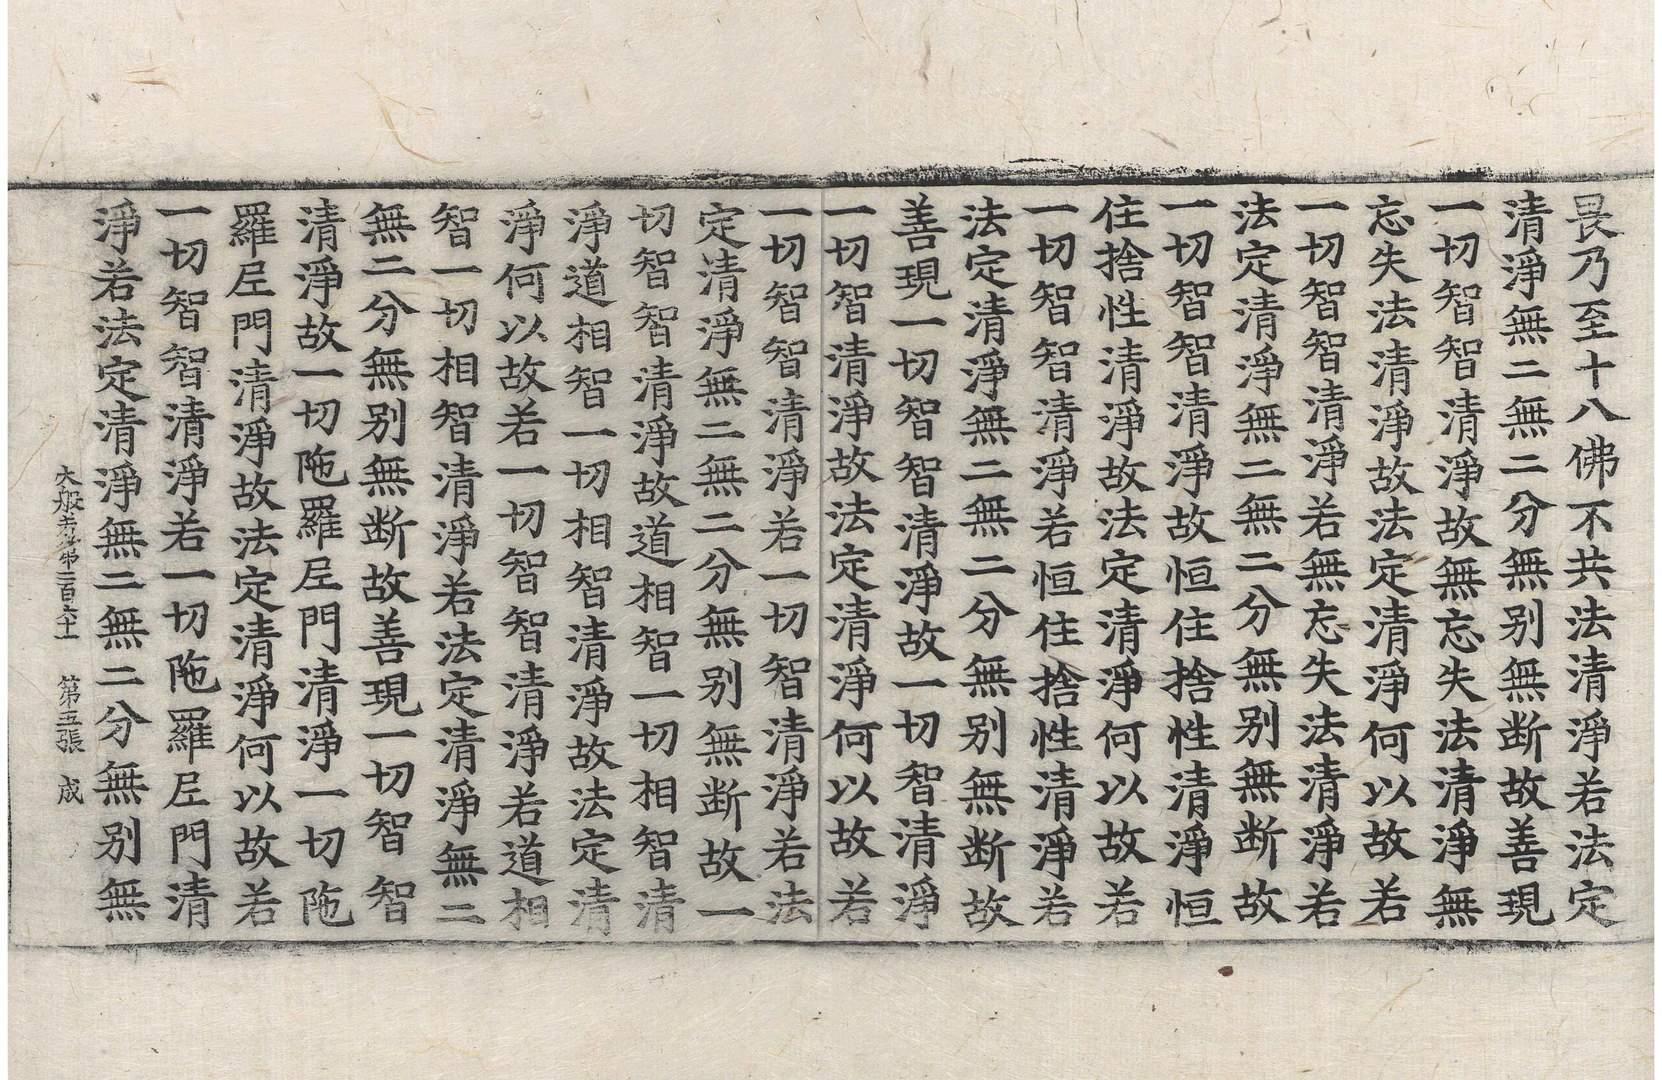 畏乃至十八佛不共法清淨若法定
清淨無二無二分無别無断故善現
一切智智清淨故無忘失法清淨無
忘失法清淨故法定清淨何以故若
一切智智清淨若無忘失法清淨若
法定清淨無二無二分無别無断故
一切智智清淨故恒住捨性清淨恒
住捨性清淨故法定清淨何以故若
一切智智清淨若恒住捨性清淨若
法定清淨無二無二分無别無断故
善現一切智智清淨故一切智清淨
一切智清淨故法定清淨何以故若
一切智智清淨若一切智清淨若法
定清淨無二無二分無别無断故一
切智智清淨故道相智一切相智清
淨道相智一切相智清淨故法定清
淨何以故若一切智智清淨若道相
智一切相智清淨若法定清淨無二
無二分無别無断故善現一切智智
清淨故一切陁羅尼門清淨一切陁
羅尼門清淨故法定清淨何以故若
一切智智清淨若一切陁羅尼門清
淨若法定清淨無二無二分無别無
大般若經第二百六十一 第五張 成